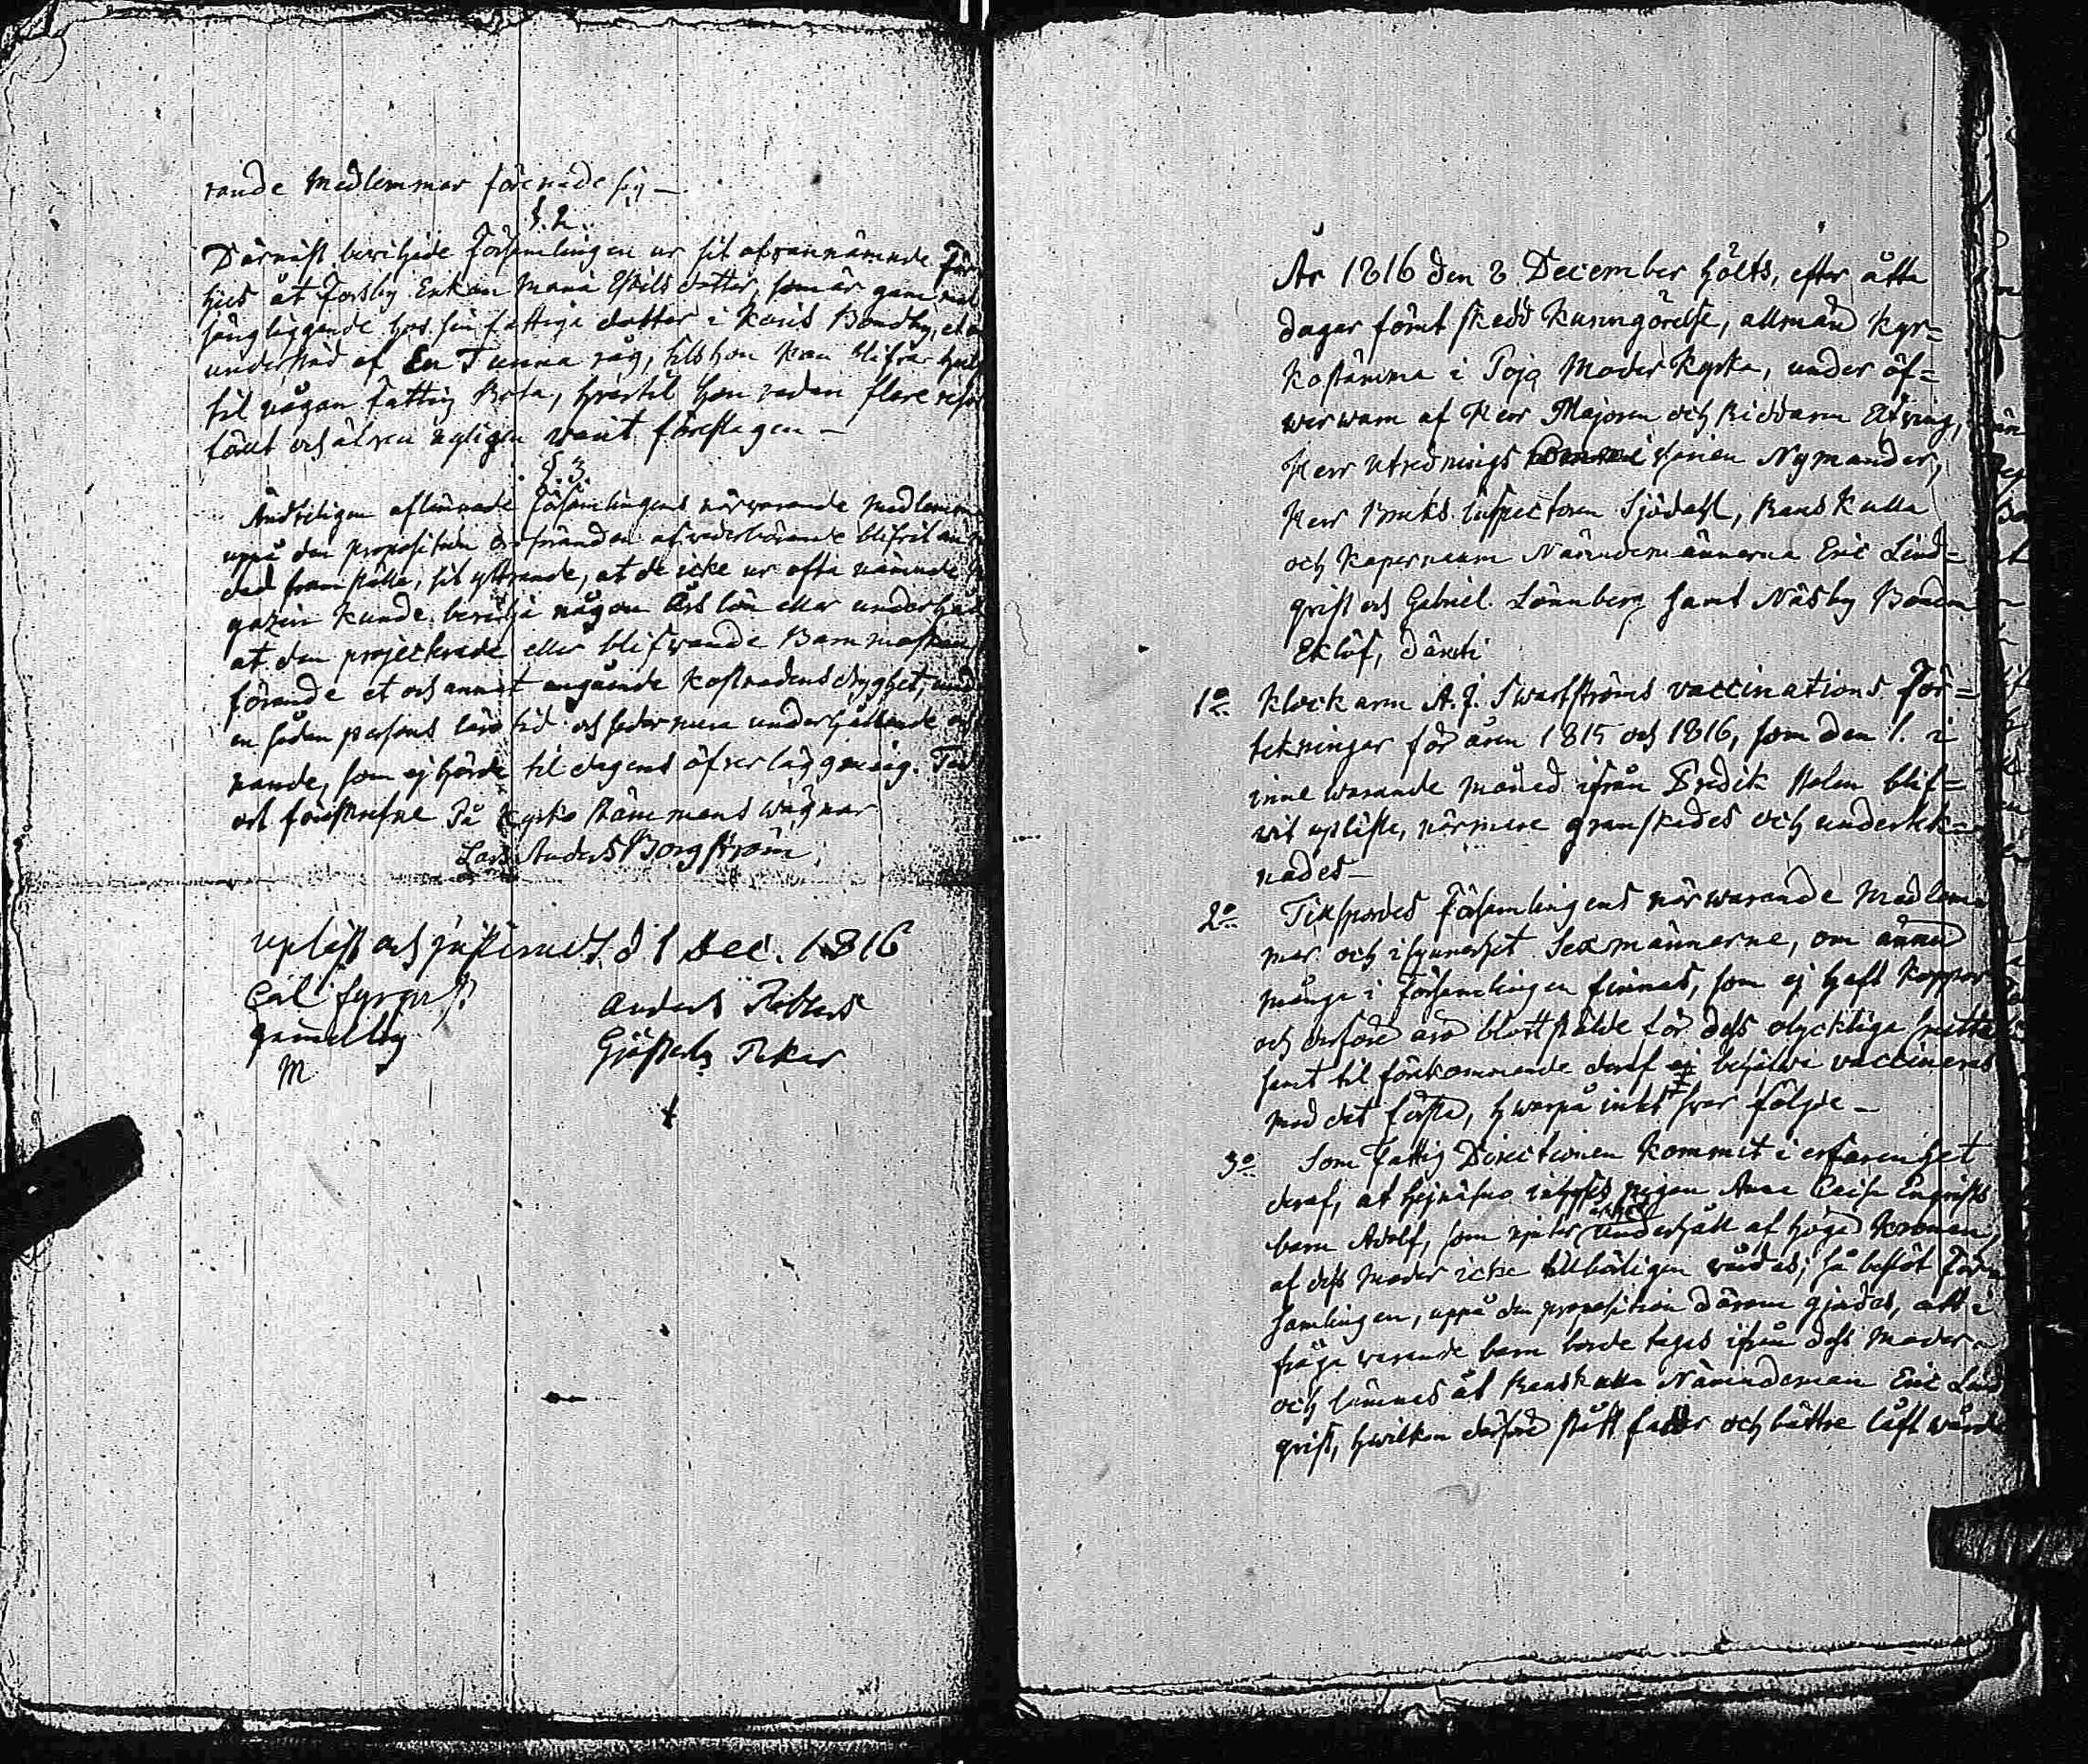 rande Medlemmar förenade sig —
§. 2.
Därnäst beviljade Församlingen ur sit ofvannämnde
hus åt Forsby Enkan Maria Eskils dotter, som är gammal
sängliggande hos sin fattiga dotter i Karis Bondby, et
understöd af En Tunna råg, tils hon kan blifva
til någon Fattig Rota, hvartil hon redan flere
och äfven nyligen varit föreslagen —
§. 3.
Ändteligen aflämnade Församlingens närvarande Medlemmar
uppå den proposition af vederbörande blifvit
framstälte, sit yttrande, at de icke ur ofta nämnde
gazin kunde bevilja någon Års lön eller underhåld
at den projecterade eller blifvande Barnmorskan,
förande et och annat angående kostnadens dryghet, under
en sådan persons läro tid och sedermera underhållande
nande, som ej hörde til dagens öfverläggning. Tid
och förestrefne På Kyrko stämmans wägnar
Lars Anders Borgström
Upläst och justerat d 1 Dec. 1816
Carl
Gammelby
M
Anders
Gjästerby
År 1816 den 8 December hölts, efter åtta
dagar förut skedd kunngörelse, allmän Kyr=
kostämma i Pojo Moder Kyrka, under öf=
wer waro af Herr Majoren och Riddaren Elfving,
Herr Utrednings Nymander,
Herr Bruks Inspectoren Sjödahl, Ranskulla
och Kapernaum Nämndemännerna Eric Lind=
qvist och Gabriel Lönnberg samt Näsby Bonden
Eklöf, däruti
1o Klockaren A. J. Swartströms vaccinations För=
tekningar för åren 1815 och 1816, som den 1. i
inne warande månad ifrån Predik stolen blif=
vit upläste, närmare granskades och undertek=
nades —
2o Tilspordes Församlingens närwarande Medlem
mar och i synnerhet Sexmännerne, om ännu
många i Församlingen finnas, som ej haft koppor
och derföre äro blottstälde för dess olyckliga smitta
samt til förekommande deraf ej vaccineras
med det första, hwarpå intet svar följde —
3o Som Fattig Directionen kommit i erfarenhet
deraf, at inhyses pigan Anna Caisa Engvists
barn Adolf, som njuter underhåll af höga Kronan,
af dess Moder icke tillbörligen vårdas; så beslöt För=
samlingen, uppå den proposition därom gjordes, att i
fråga varande barn borde tagas ifrån dess Moder
och lämnas åt Ranskulla Nämndeman Eric Lind
qvist, hwilken derföre